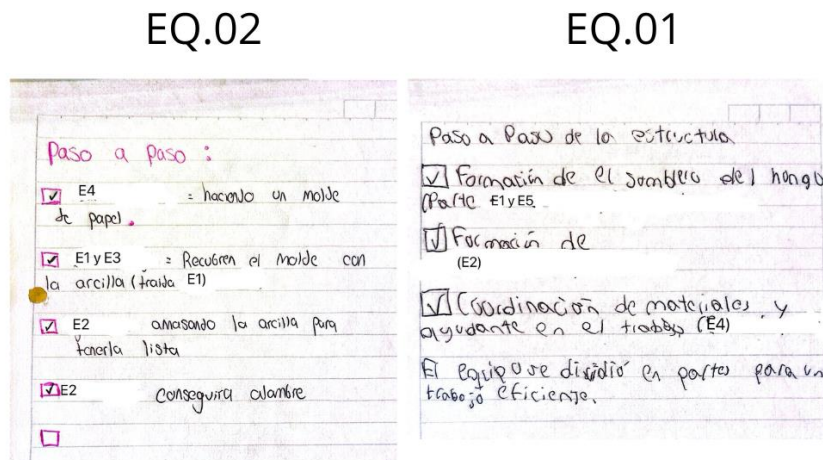 EQ.02
Paso a paso :
E4 = haciendo un molde
de papel.
E1 y E3 = Recubren el molde con
la arcilla (traida E1)
E2 amasando la arcilla para
tenerla lista
E2 conseguira alambre
EQ.01
Paso a Paso de la estructura
Formación de el sombrero del hongo
(Parte E1 y E5.
Formación de
(E2)
Coordinación de materiales y
ayudante en el trabajo (E4)
El equipo se dividió en partes para un
trabajo eficiente.